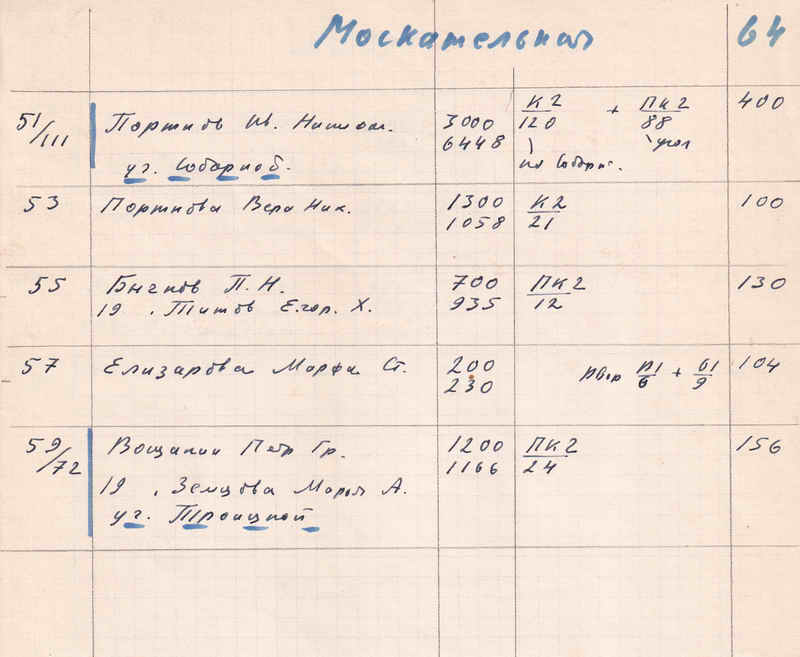 Москательная 64
51/111 Портнов Ив. 3000 К2/120 + ПК2/88 400
6448 по Соборн. угол
уг. Соборной.
53 Портнова Вера Ник. 1300 К2/21 100
1058
55 Бычков П. Н. 700 ПК2/12 130
19 , Титов Егор. Х. 935
57 Елизарова Марфа Ст. 200 двор П1/6 + Б1/9 104
230
59/72 Вощакин Петр Гр. 1200 ПК2/24 156
1166
19 , Земцова Мария А.
уг. Троицкой